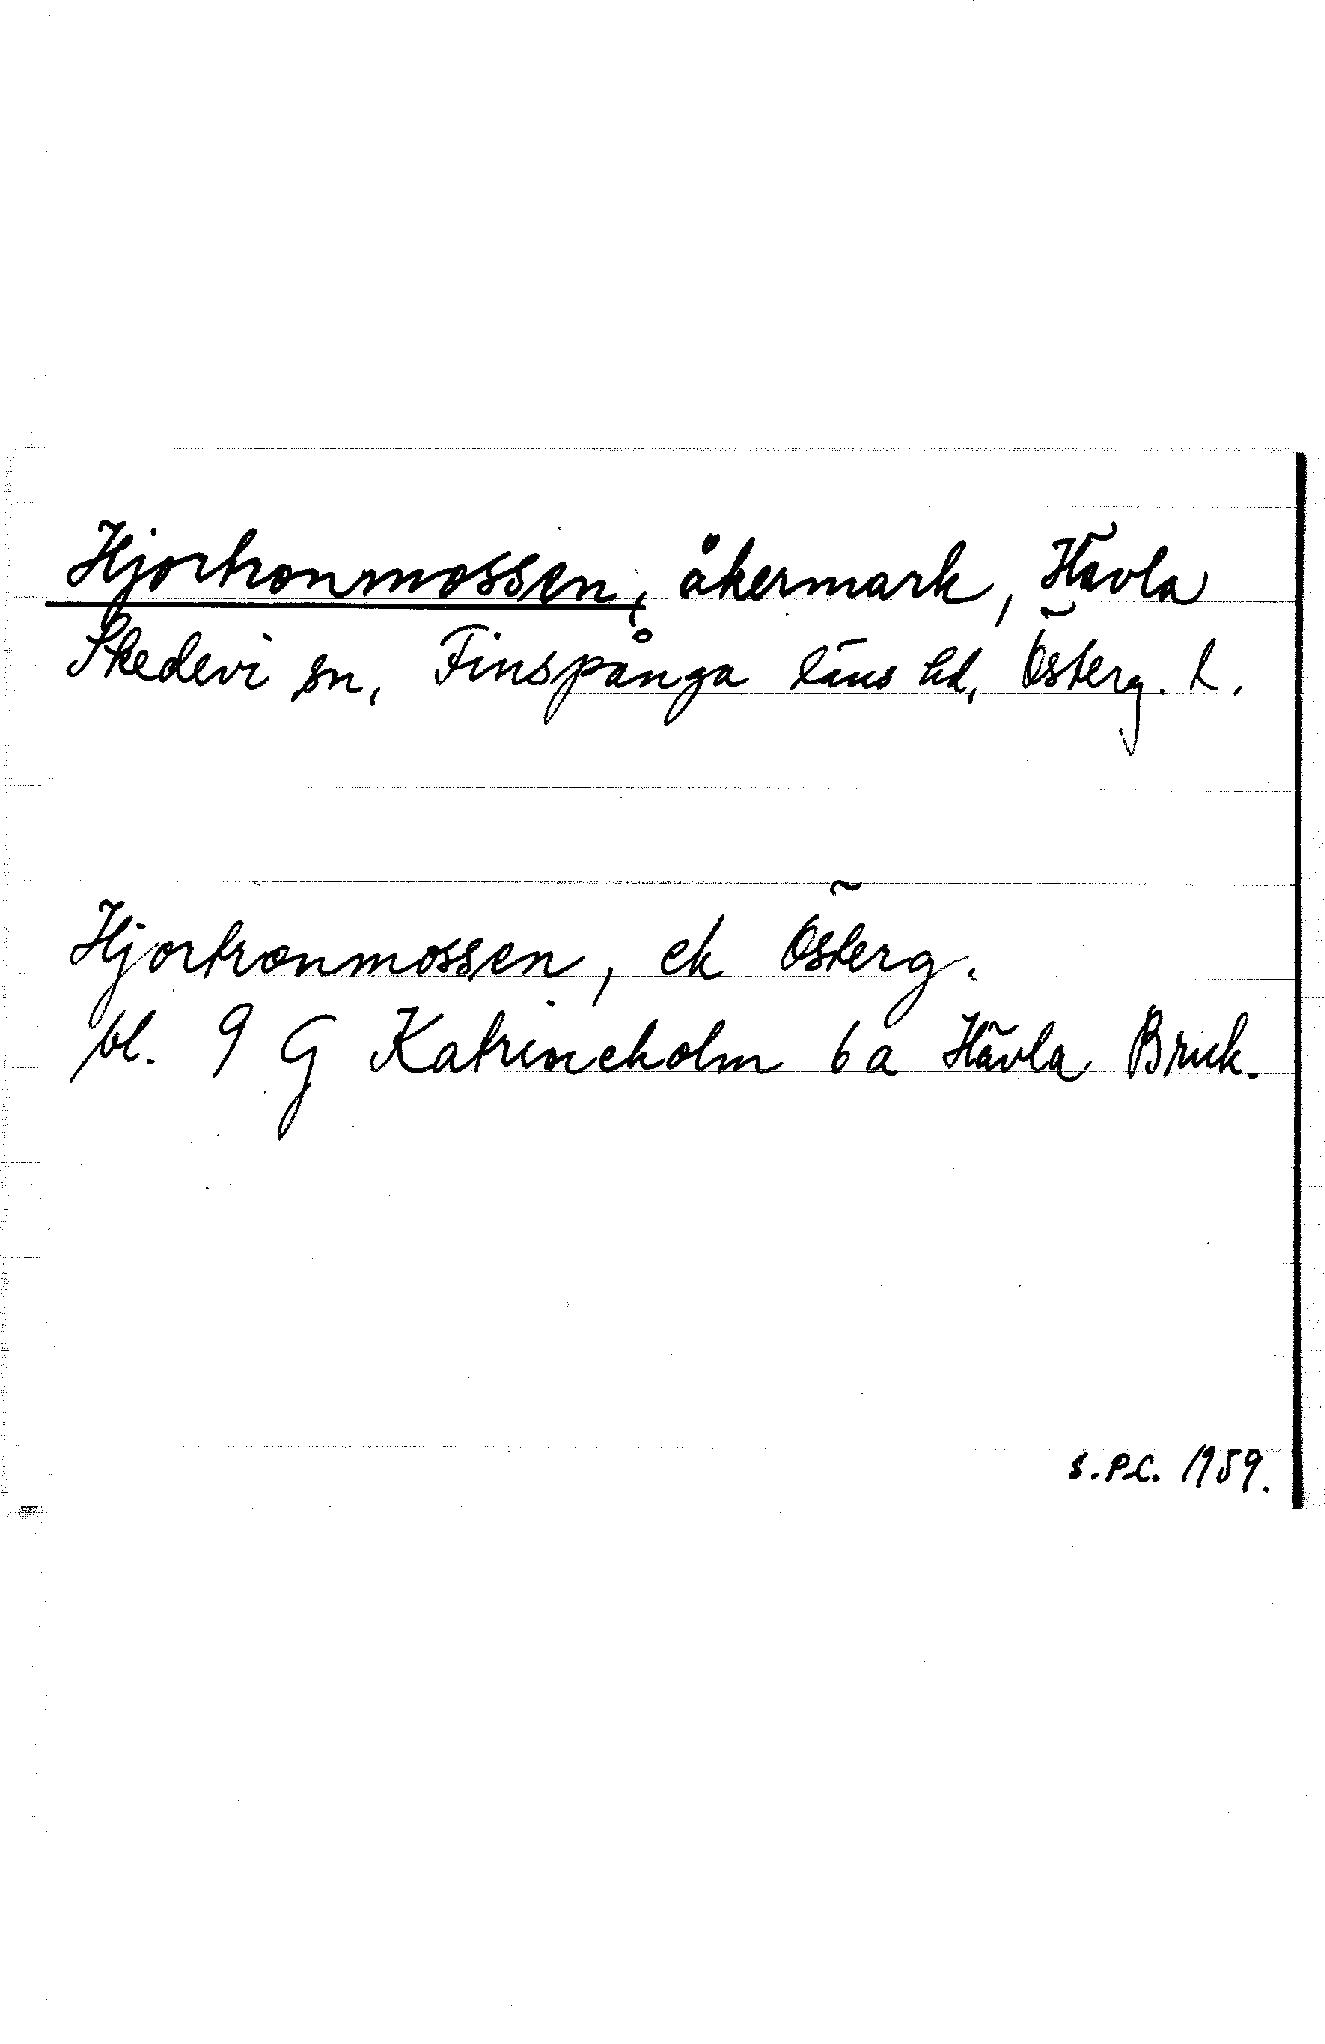 Hjortronmossen, åkermark, Hävla
Skedevi sn, Finspånga läns hd, Österg. L.
Hjortronmossen, ek Österg.
bl. 9 G Katrineholm 6 a Hävla Bruk.
S.P.C. 1959.